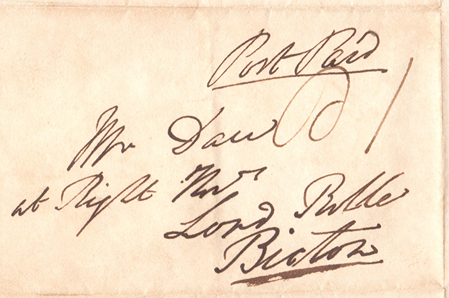 Post Paid
Mr Daw
at Right Honr
Lord Rolle
Bicton